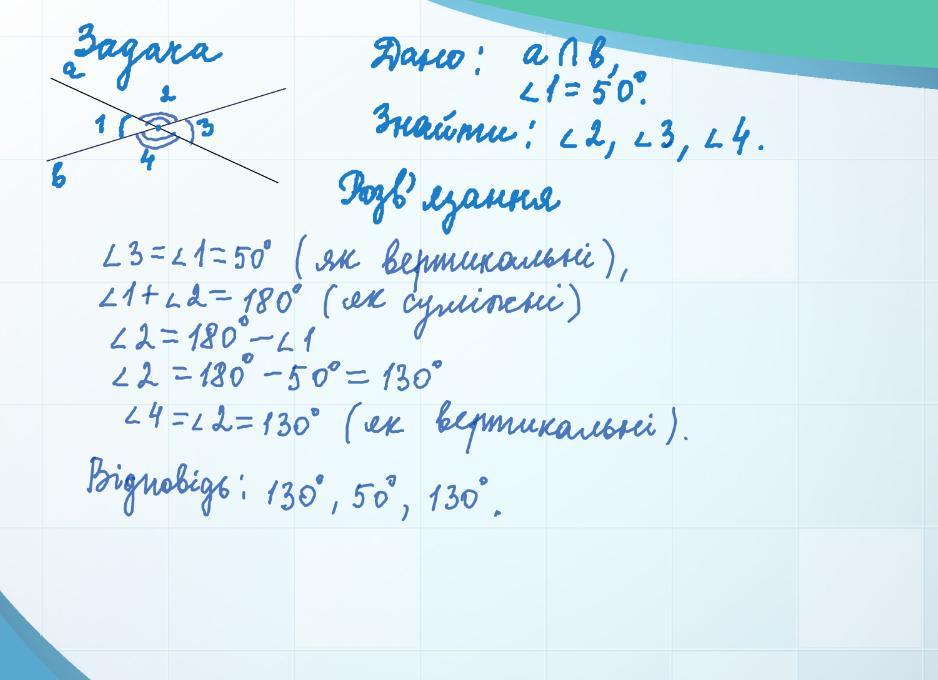 Задача
a
2
1
3
4
в
Дано: a ∩ в,
∠1 = 50°.
Знайти: ∠2, ∠3, ∠4.
Розв'язання
∠3 = ∠1 = 50° (як вертикальні),
∠1 + ∠2 = 180° (як суміжні)
∠2 = 180° – ∠1
∠2 = 180° – 50° = 130°
∠4 = ∠2 = 130° (як вертикальні).
Відповідь: 130°, 50°, 130°.